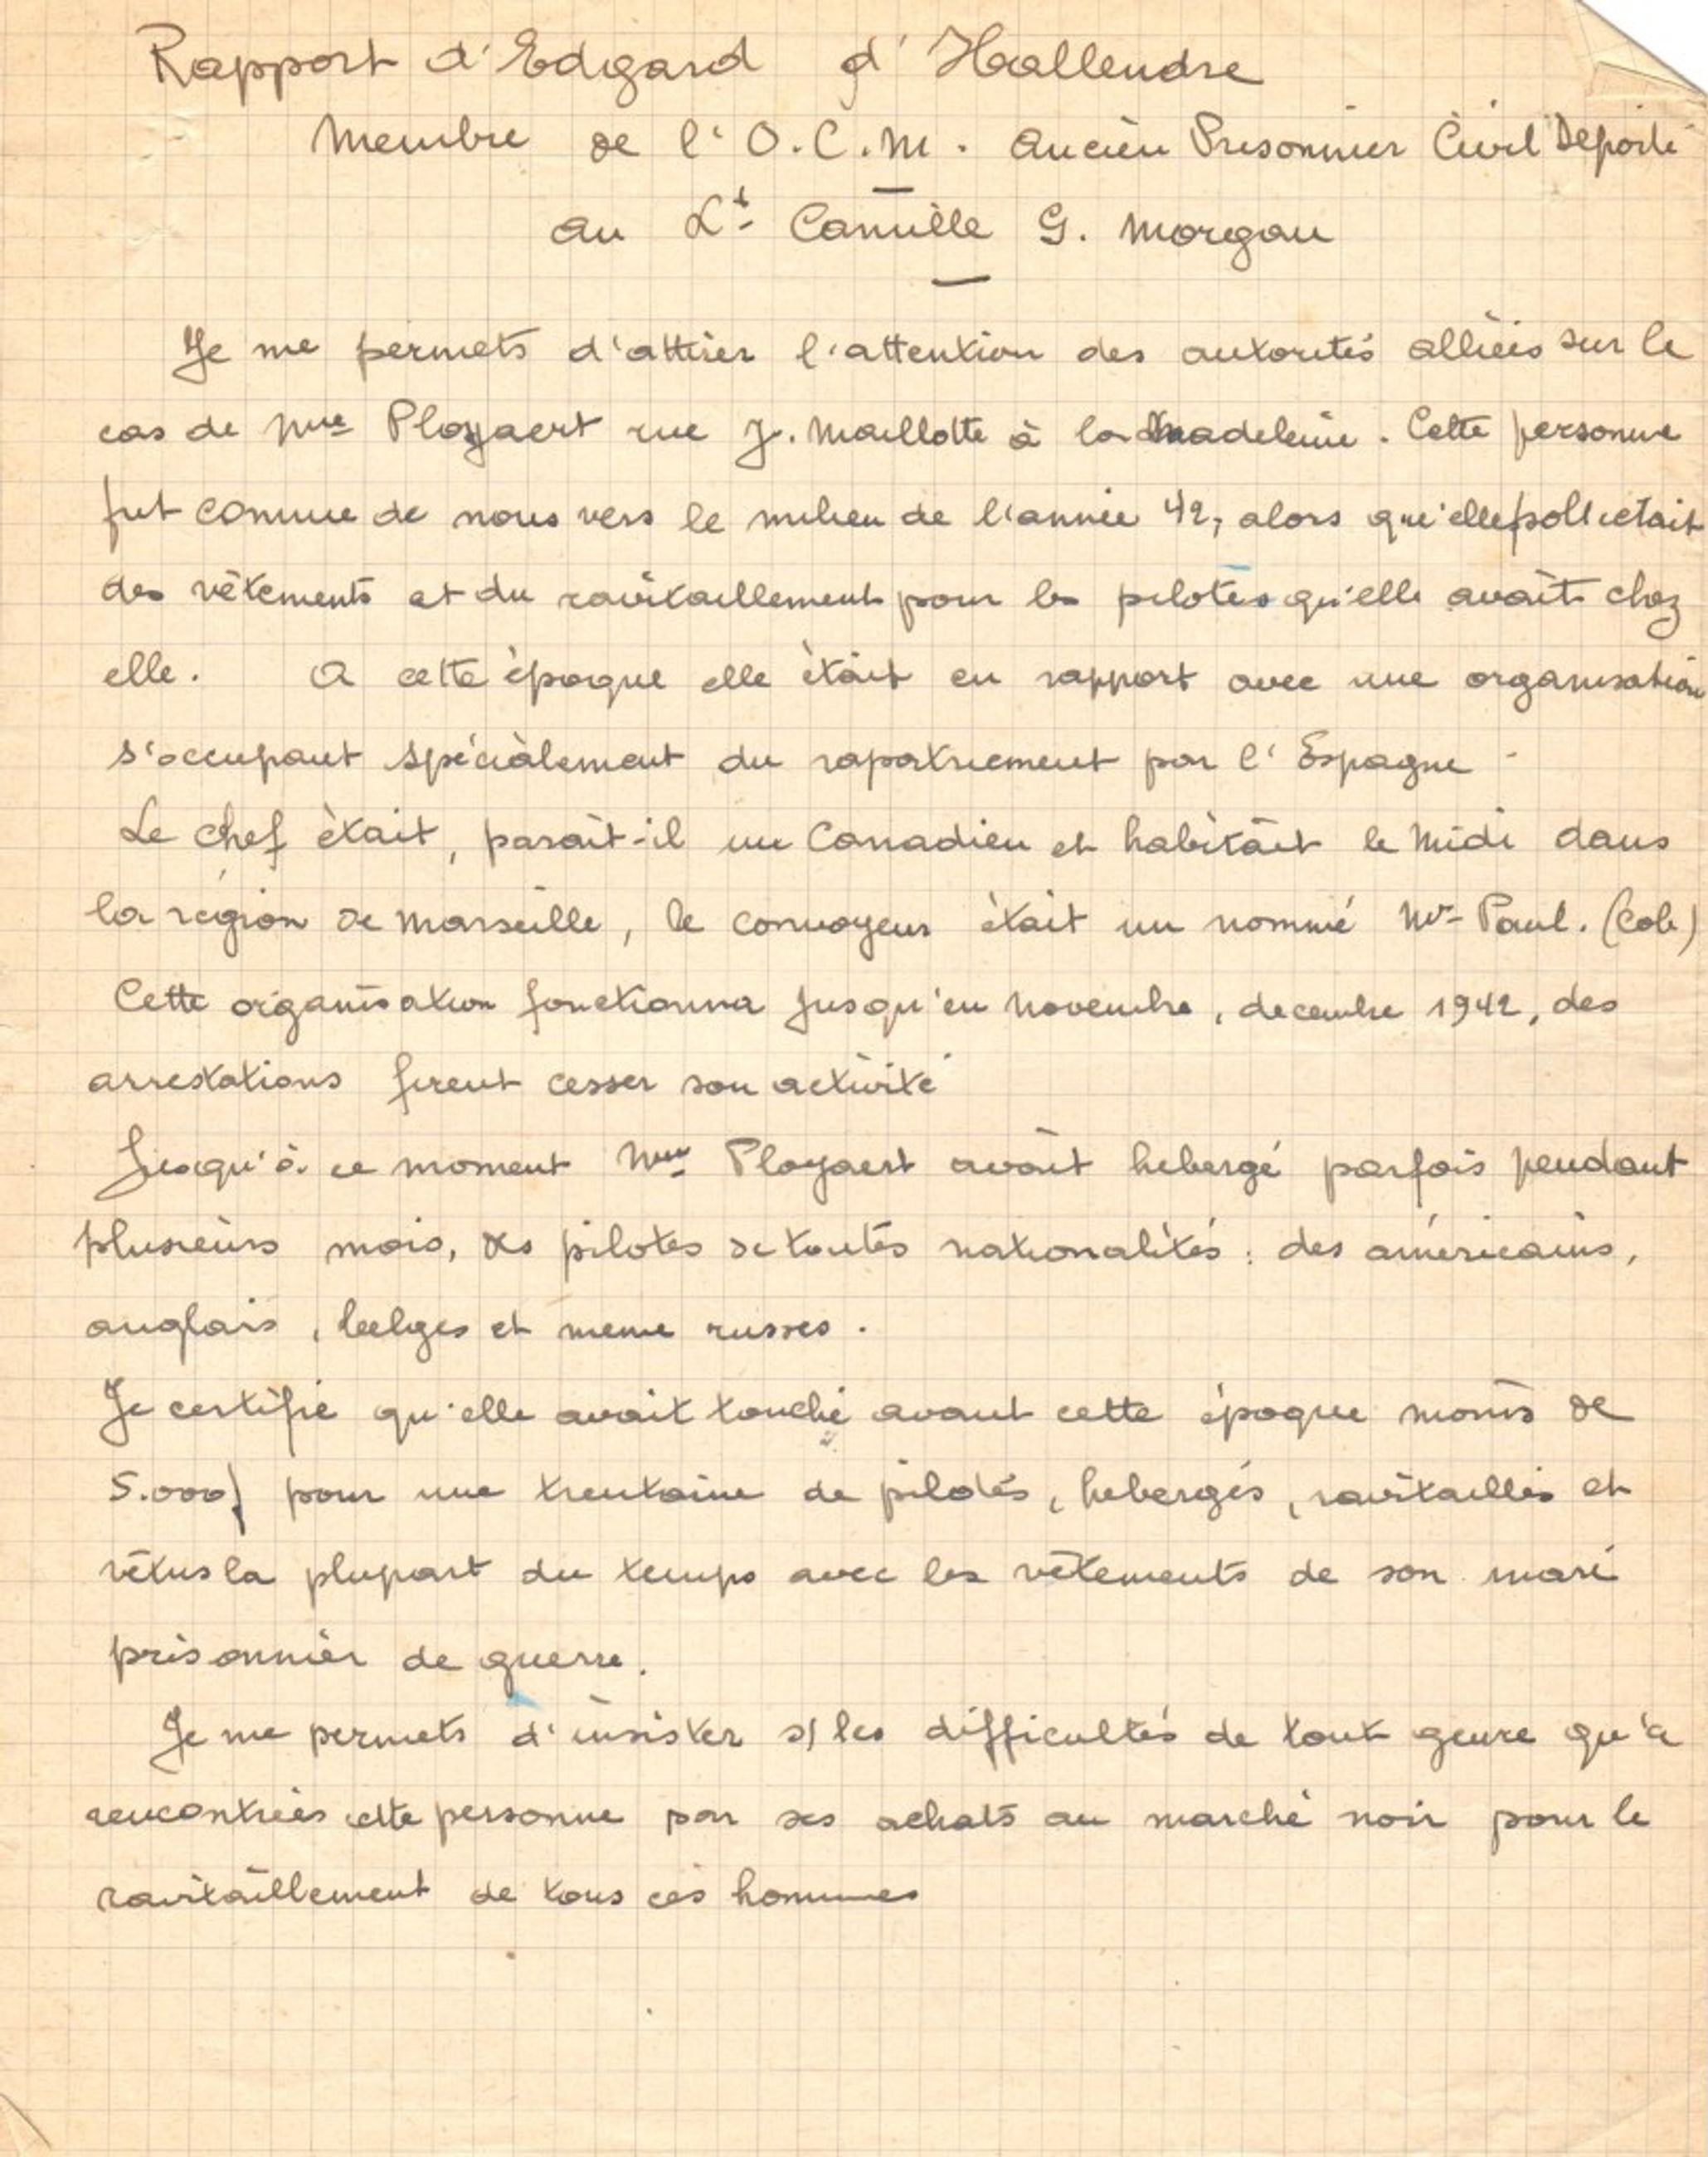 Rapport d'Edgard d'Hallendre
Membre de l'O.C.M. Ancien Prisonnier Civil Déporté
au Lt Camille G. Morgan
Je me permets d'attirer l'attention des autorités alliées sur le
cas de Mme Ployaert rue J. Maillotte à la Madeleine. Cette personne
fut connue de nous vers le milieu de l'année 42, alors qu'elle sollicitait
des vêtements et du ravitaillement pour les pilotes qu'elle avait chez
elle. A cette époque elle était en rapport avec une organisation
s'occupant spécialement du rapatriement par l'Espagne -
Le chef était, parait-il un Canadien et habitait le Midi dans
la région de Marseille, le convoyeur était un nommé Mr Paul. (Cole)
Cette organisation fonctionna jusqu'en novembre, decembre 1942, des
arrestations firent cesser son activité
Jusqu'à ce moment Mme Ployaert avait hebergé parfois pendant
plusieurs mois, des pilotes de toutes nationalités : des américains,
anglais, belges et meme russes.
Je certifie qu'elle avait touché avant cette époque moins de
5.000f pour une trentaine de pilotes, hebergés, ravitaillés et
vêtus la plupart du temps avec les vêtements de son mari
prisonnier de guerre.
Je me permets d'insister s/ les difficultés de tout genre qu'a
rencontrées cette personne par ses achats au marché noir pour le
ravitaillement de tous ces hommes